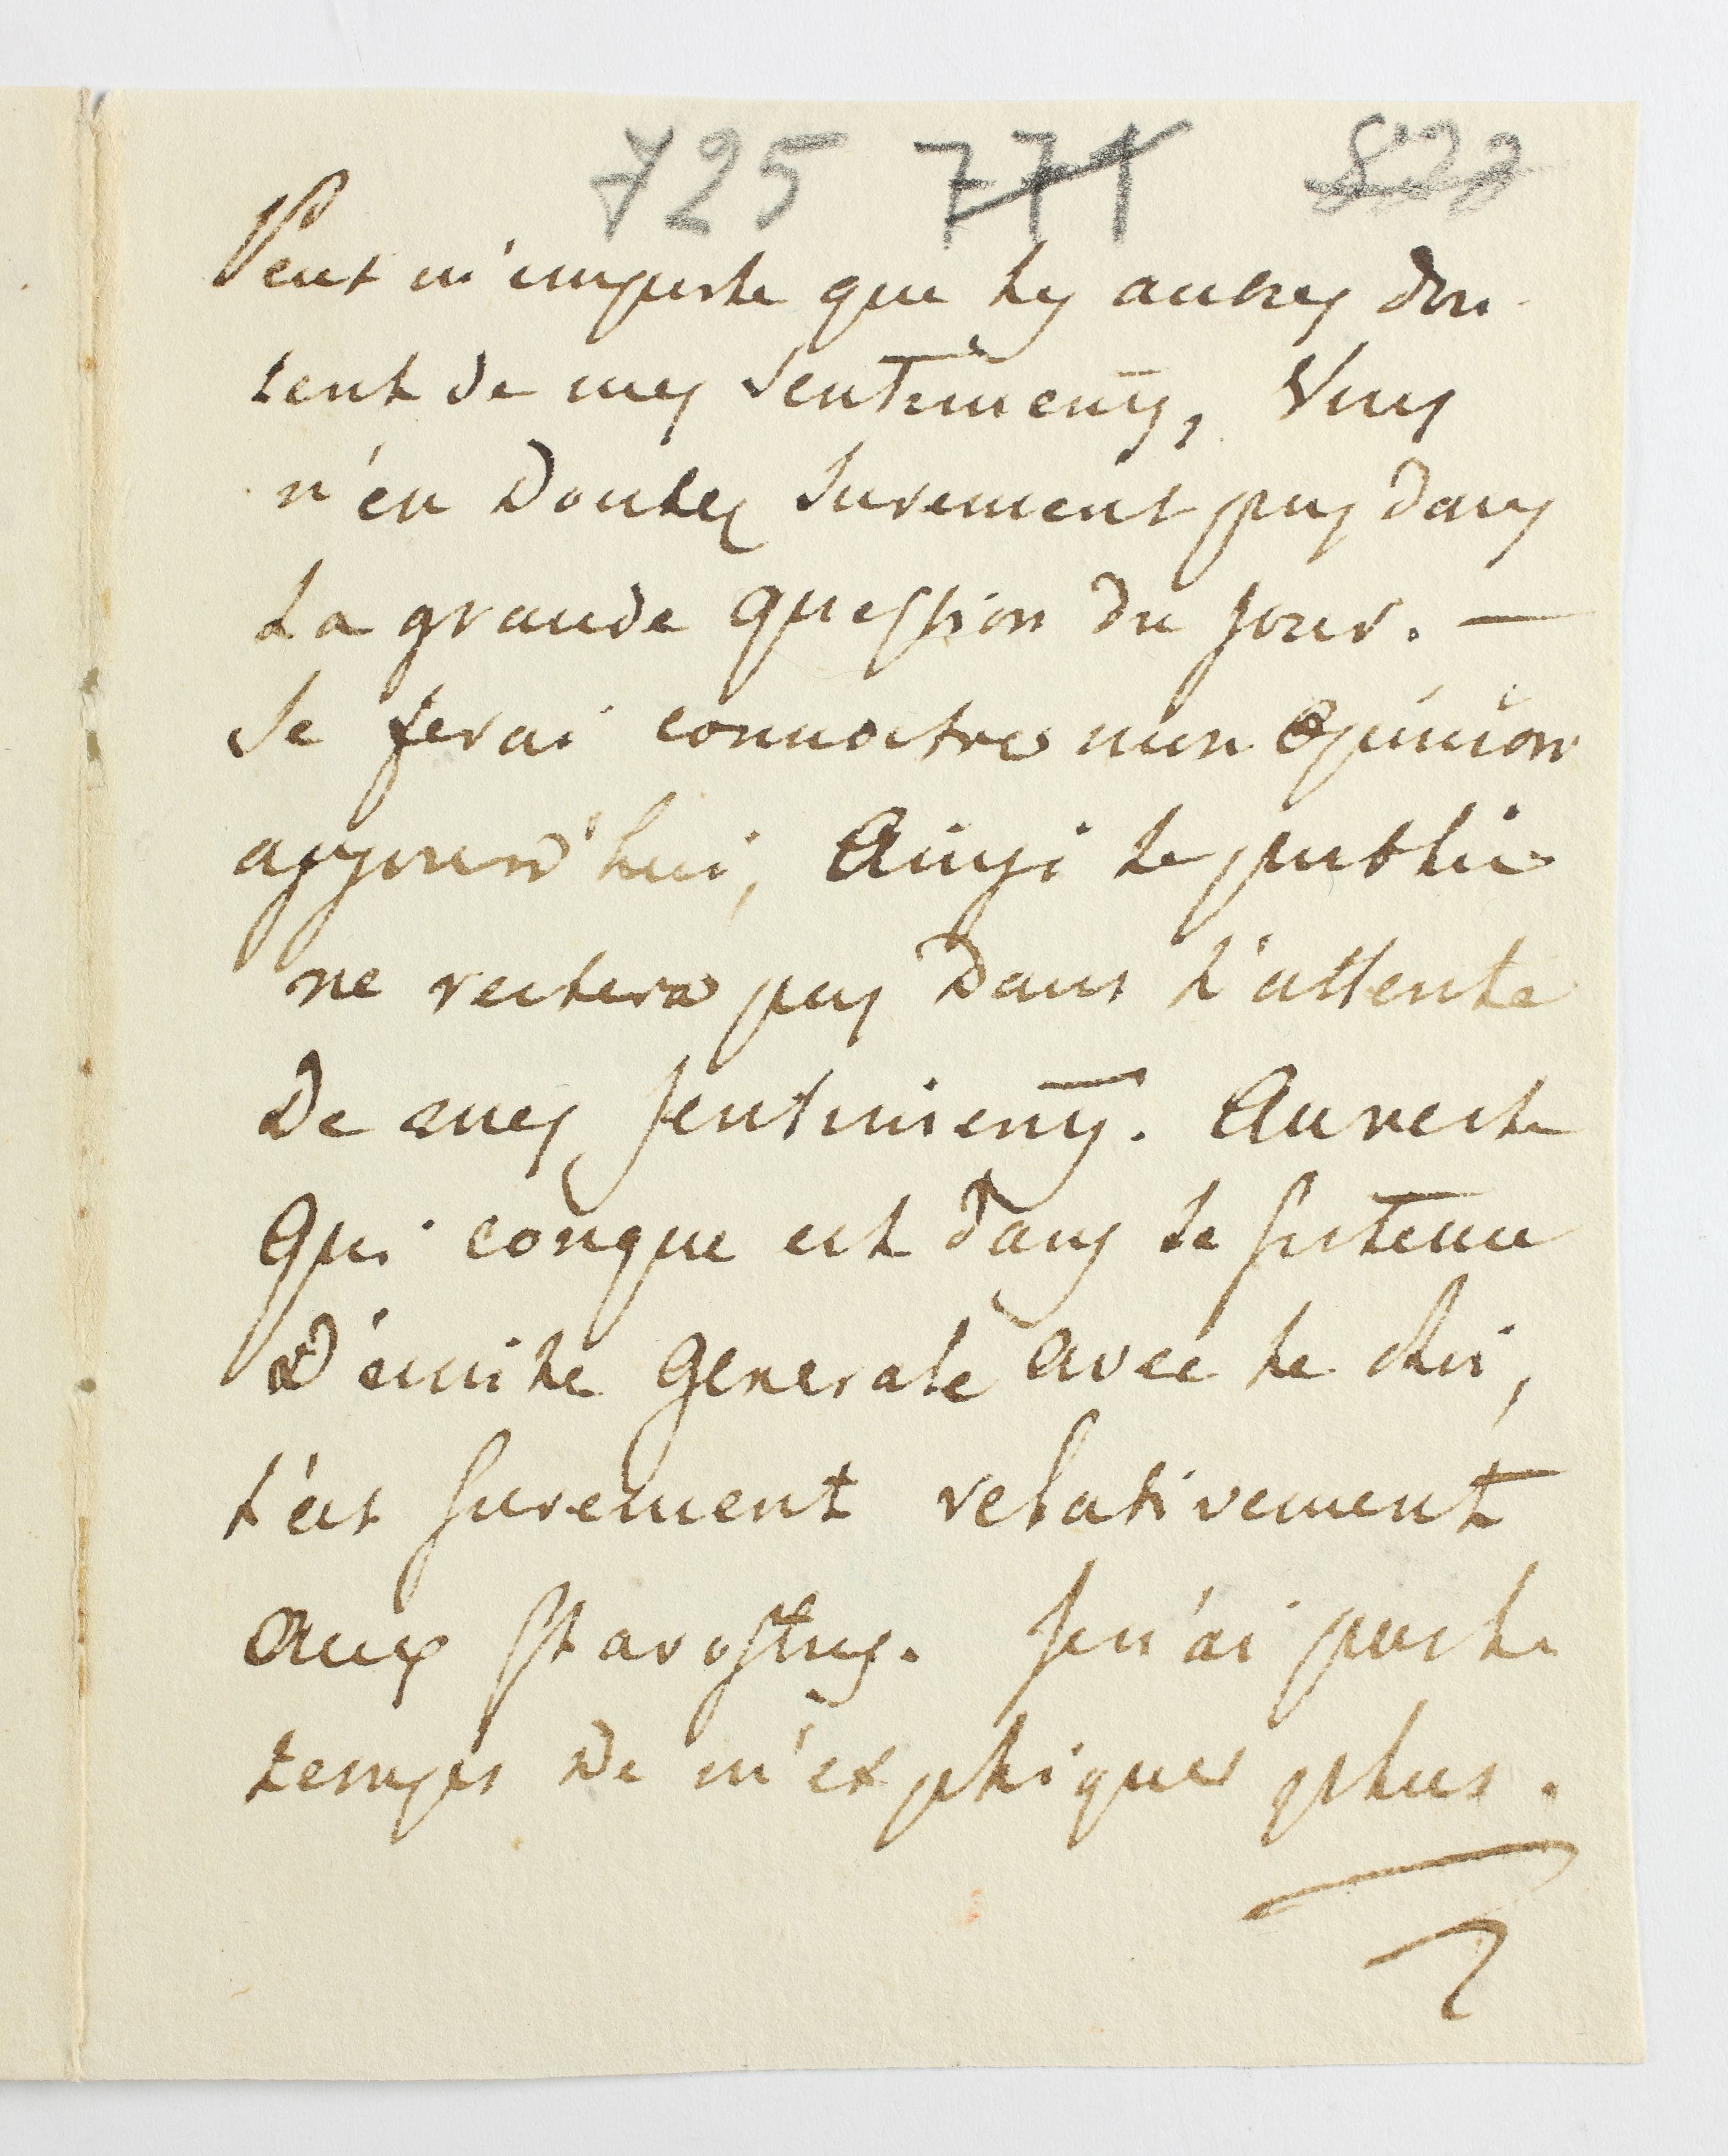 725 771 822
Peut m'importe que les autres dou-
tent de mes Sentimens, Vous
n'en Doutez Surement pas dans
La grande question du jour. —
Je ferai connoitre mon Opinion
aujourd'hui, Ainsi le public
ne restera pas Dans l'attente
De mes Sentimens. Au reste
Qui conque est dans le sisteme
D'Generale avec le Roi,
l'est surement relativement
Aux Starosties. Je n'ai pas le
temps De m'expliquer plus.